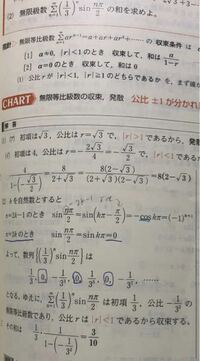 (2) 無限級数 Σ(1/3)ⁿ sin nπ/2 の和を求めよ。
無限等比級数 Σ arⁿ⁻¹=a+ar+ar²+…… の収束条件は
[1] a≠0, |r|<1のとき 収束して, 和は a/(1-r)
[2] a=0のとき 収束して, 和は 0
(1) 公比 r が |r|<1, |r|≧1 のどちらであるか
CHART 無限等比級数の収束, 発散 公比 ±1 が分かれ
解答
(1) (ア) 初項は√3, 公比は r=√3 で, |r|>1 であるから, 発
(イ) 初項は 4, 公比は r=-2√3/4=-√3/2
4/(1-(-√3/2))=8/(2+√3)=8(2-√3)/((2+√3)(2-√3))=8(2-√3)
(2) k を自然数とすると
n=2k-1のとき sin nπ/2=sin(kπ-π/2)=-cos kπ=(-1)ᵏ⁺¹
n=2kのとき sin nπ/2=sin kπ=0
よって, 数列{(1/3)ⁿ sin nπ/2}は
1/3, 0, -1/3³, 0, 1/3⁵, 0, -1/3⁷, ……
となる。ゆえに, Σ(1/3)ⁿ sin nπ/2 は初項 1/3, 公比 -1/3²
の無限等比級数であり, 公比 r は |r|<1 であるから収束する。
その和は (1/3)/(1-(-1/3²))=3/10